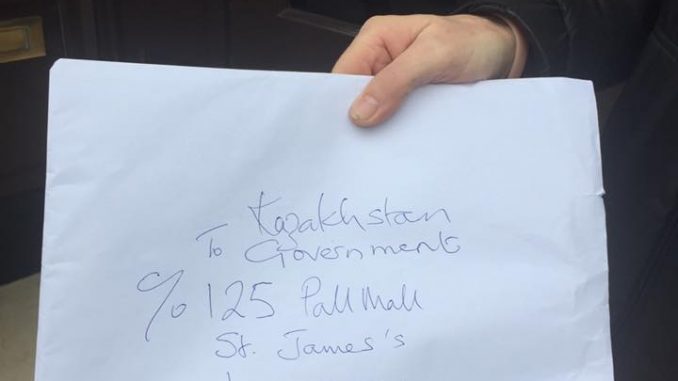 Kazakhstan
To Government
% 125 Pall Mall
St. James's